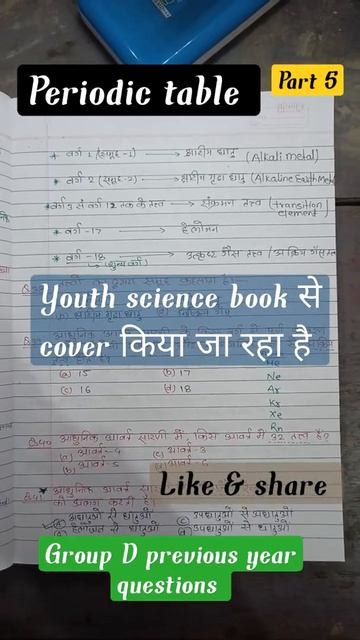 Periodic table
Part 5
* वर्ग 1 (समूह -1) → क्षारीय धातु (Alkali metal)
* वर्ग 2 (समूह -2) → क्षारीय मृदा धातु (Alkaline Earth Metal
* वर्ग 3 से वर्ग 12 तक के तत्व → संक्रमण तत्व (transition
element)
* वर्ग -17 → हैलोजन
* वर्ग -18 → उत्कृष्ट गैस तत्व / अक्रिय गैस तत्व
(शून्य वर्ग)
Youth science book से
cover किया जा रहा है
(a) 15 (b) 17
(c) 16 (d) 18
He
Ne
Ar
Kr
Xe
Rn
Q.40 आधुनिक आवर्त सारणी में, किस आवर्त में 32 तत्व हैं?
(a) आवर्त-4 (c) आवर्त-3
(b) आवर्त-5 आवर्त-6
Q.41 आधुनिक आवर्त
Like & share
(a) अधातुओं से धातुओं (c) उपधातुओं से अधातुओं
(b) हैलोजन से धातुओं (d) उपधातुओं से धातुओं
Group D previous year
questions